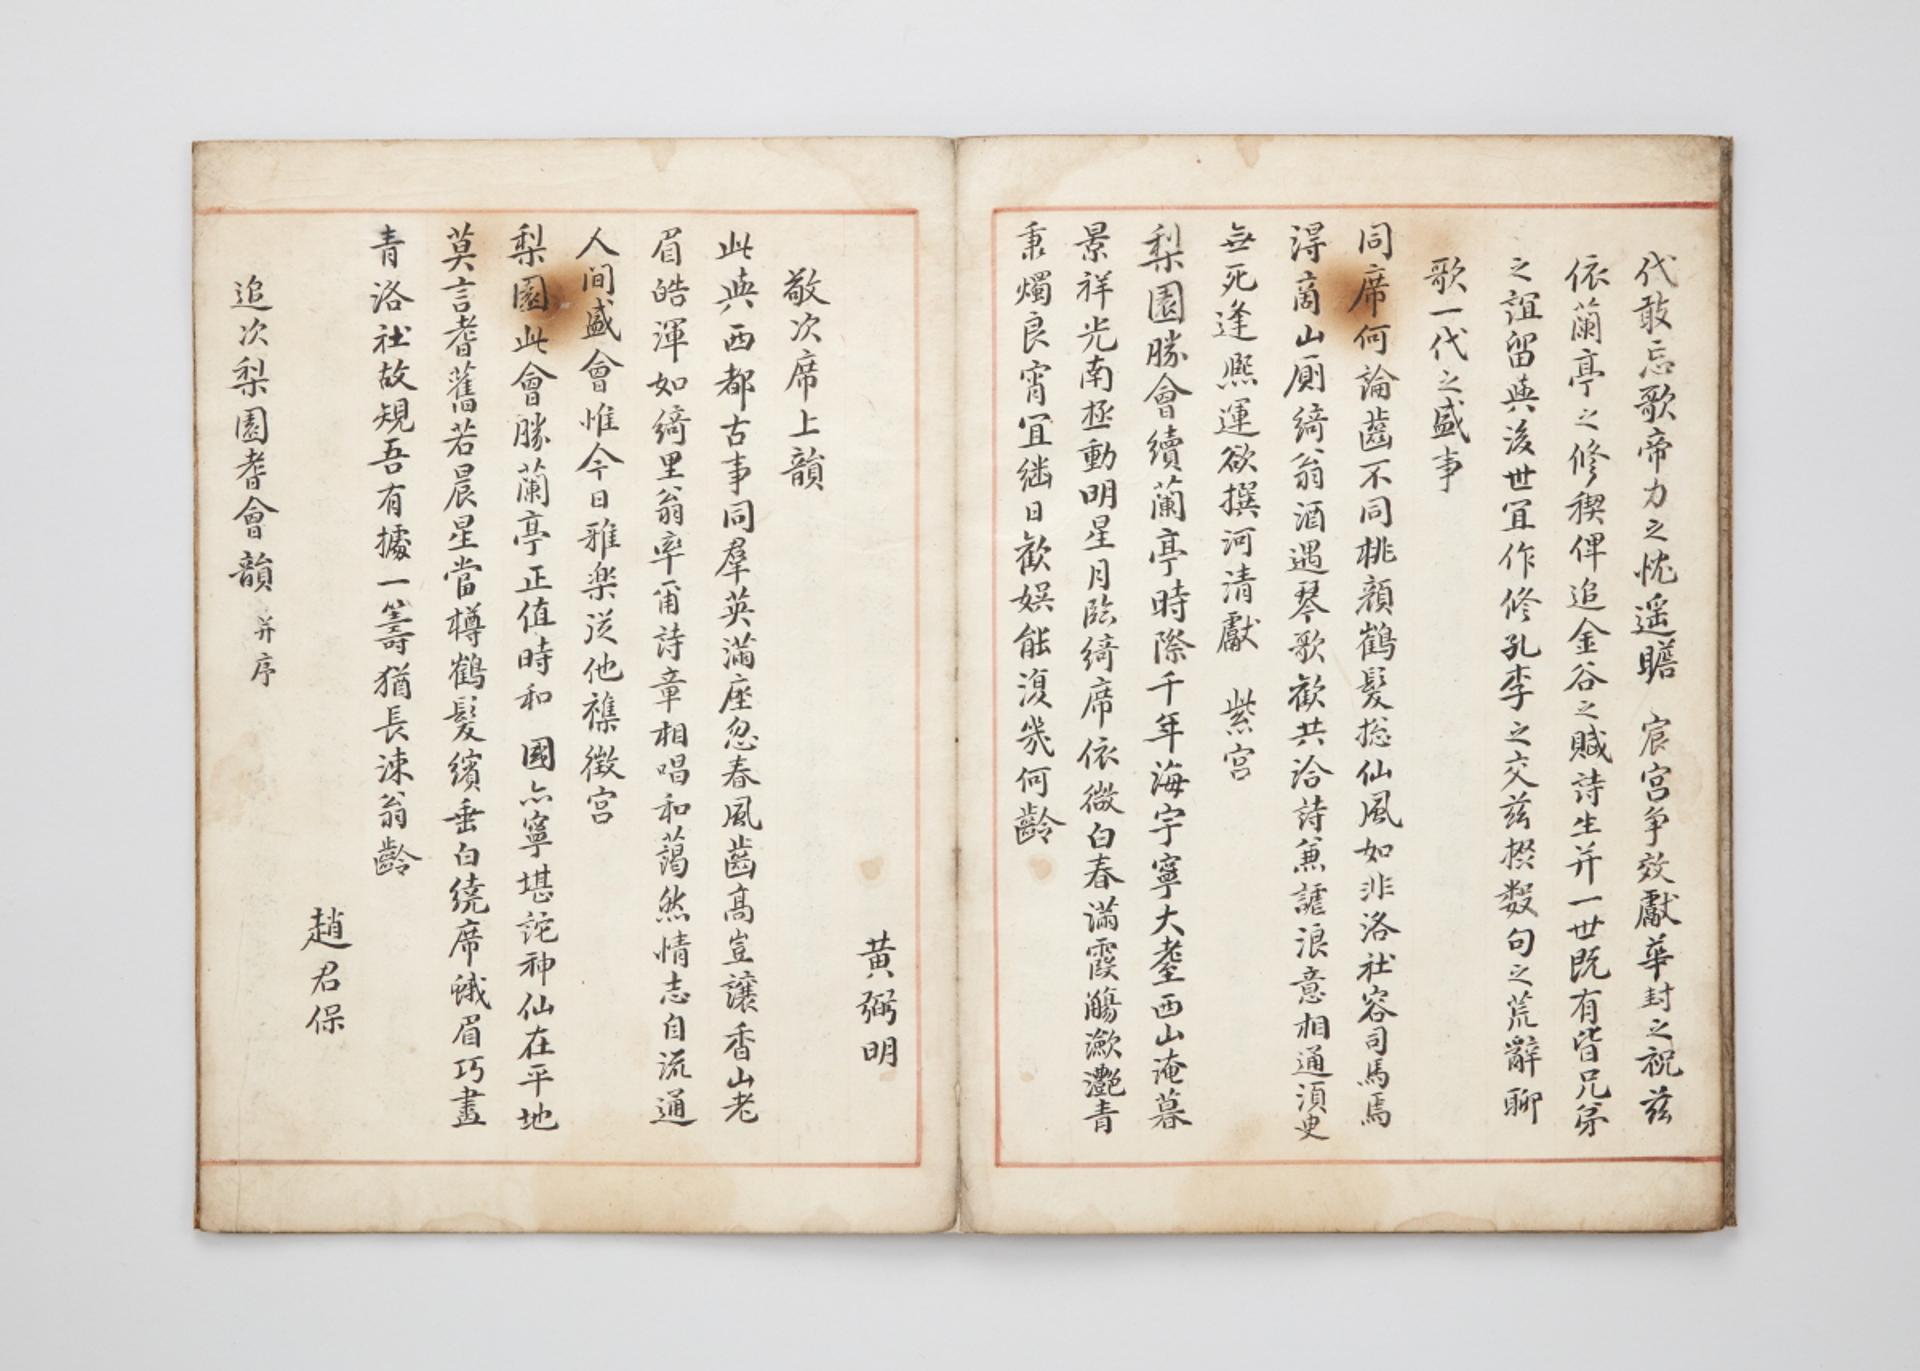 代敢忘歌帝力之忱遥瞻 宸宮争效獻華封之祝玆
依蘭亭之修稧俾追金谷之賦詩生并一世既有皆兄弟
之誼留與後世宜作修孔李之交玆掇数句之荒辭聊
歌一代之盛事
同席何論齒不同桃顔鶴髮捴仙風如非洛社容司馬焉
得商山厠綺翁酒遇琴歌歡共洽詩兼謔浪意相通須臾
無死逢熈運欲撰河清獻 紫宮
梨園勝會續蘭亭時際千年海宇寧大耋西山淹暮
景祥光南極動明星月臨綺席依微白春滿霞觴瀲灧青
秉燭良宵宜継日歡娯能復幾何齡
黃弼明
敬次席上韻
此與西都古事同羣英滿座忽春風齒高豈讓香山老
眉皓渾如綺里翁率甭詩章相唱和藹然情志自流通
人間盛會惟今日雅楽従他襍徵宮
梨園此會勝蘭亭正値時和 國亦寧堪詫神仙在平地
莫言耆舊若晨星當樽鶴髮繽垂白繞席蛾眉巧畫
青洛社故規吾有據一籌猶長涑翁齡
趙君保
追次梨園耆會韻 并序